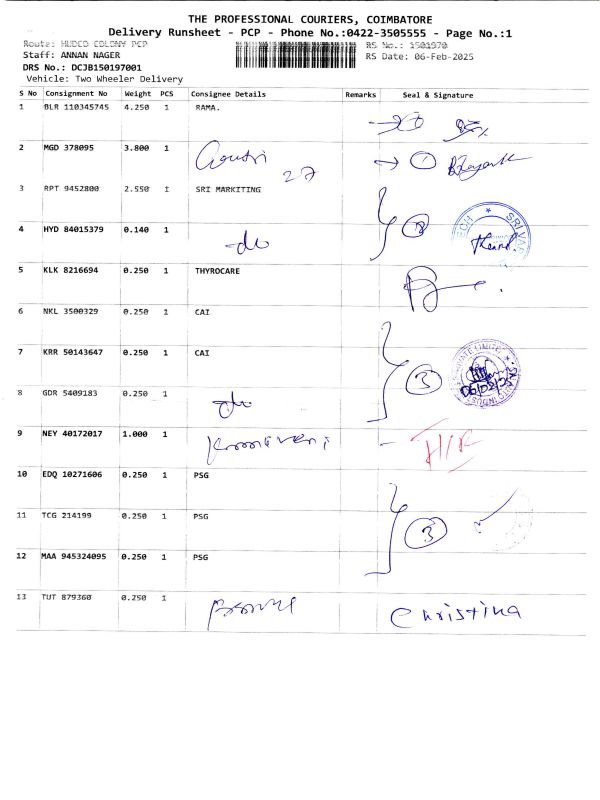 THE PROFESSIONAL COURIERS, COIMBATORE
Delivery Runsheet - PCP - Phone No.:0422-3505555 - Page No.:1
Route: HUDCO COLONY PCP RS No.: 1501970
Staff: ANNAN NAGER RS Date: 06-Feb-2025
DRS No.: DCJB150197001
Vehicle: Two Wheeler Delivery
S No Consignment No Weight PCS Consignee Details Remarks Seal & Signature
1 BLR 110345745 4.250 1 RAMA.
2 MGD 378095 3.800 1 27 1
3 RPT 9452800 2.550 1 SRI MARKITING
4 HYD 84015379 0.140 1 -do 2
5 KLK 8216694 0.250 1 THYROCARE
6 NKL 3500329 0.250 1 CAI
7 KRR 50143647 0.250 1 CAI 3
8 GDR 5409183 0.250 1 do
9 NEY 40172017 1.000 1
10 EDQ 10271606 0.250 1 PSG
11 TCG 214199 0.250 1 PSG 3
12 MAA 945324095 0.250 1 PSG
13 TUT 879360 0.250 1 Christina